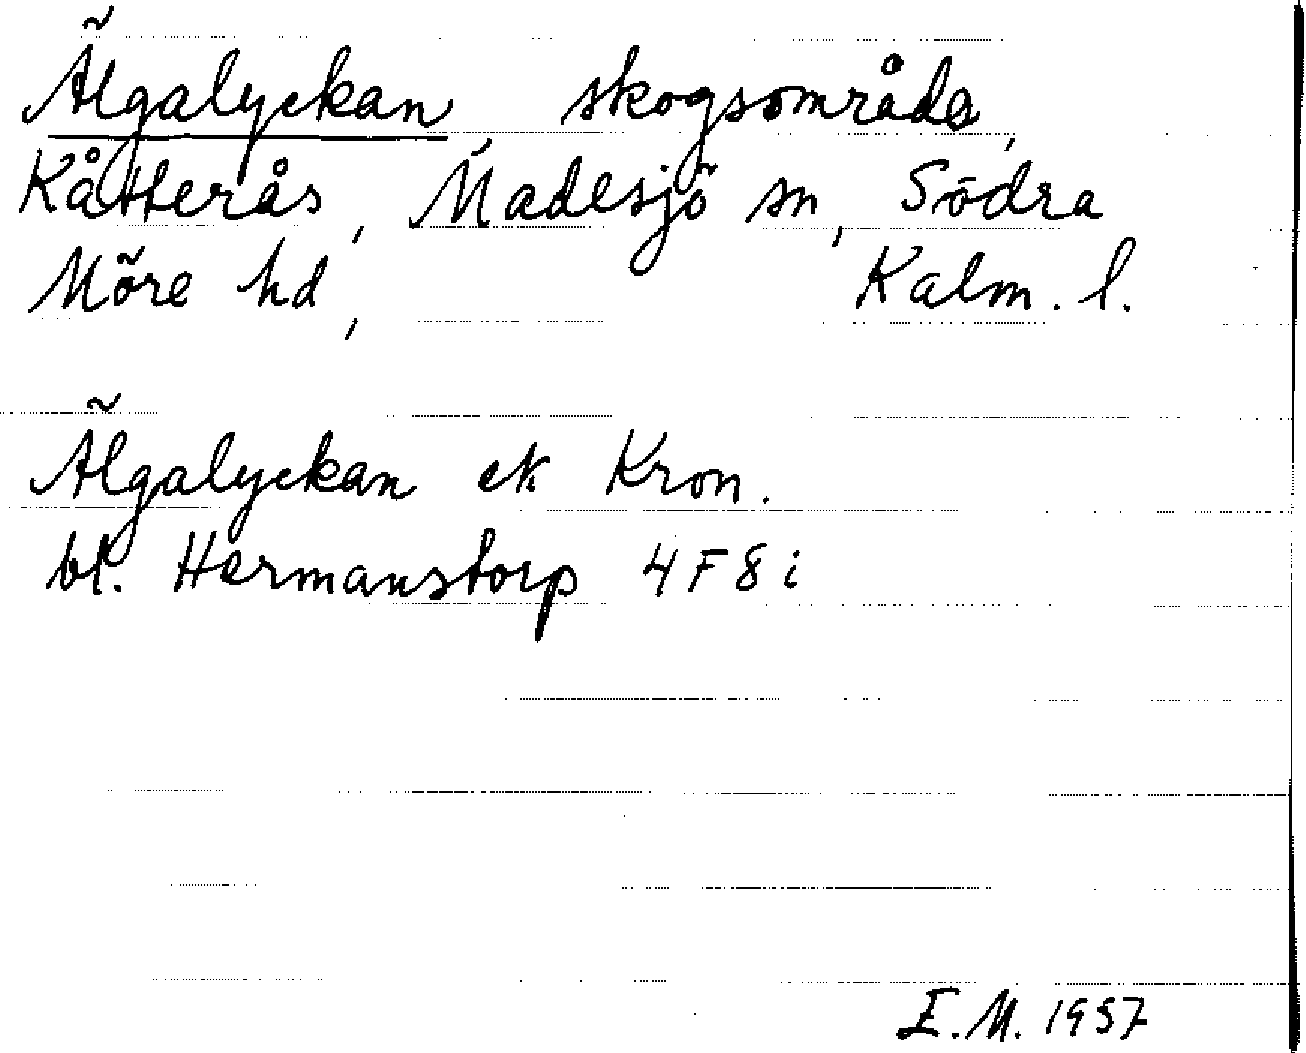 Älgalyckan skogsområde,
Kåtterås, Madesjö sn, Södra
Möre hd, Kalm. l.
Älgalyckan ek Kron.
bl. Hermanstorp 4 F 8 i
E.M. 1957